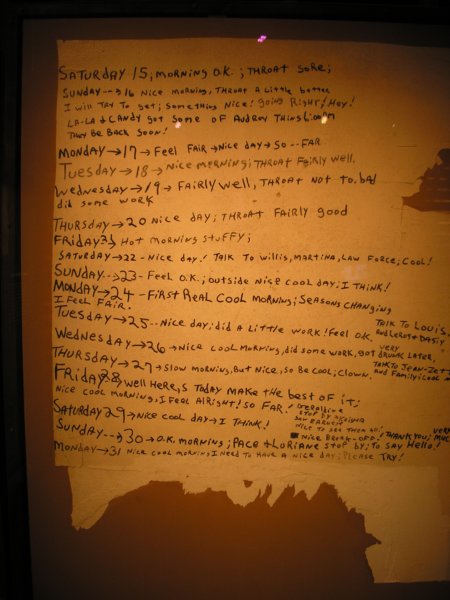 SATURDAY 15; MORNING O.K.; THROAT SORE;
SUNDAY --→ 16 NICE MORNING, THROAT A LITTLE BETTER
I WILL TRY TO GET; SOMETHING NICE! GOING RIGHT! HEY!
LA-LA & CANDY GOT SOME OF AUDREY THINGS;
THEY BE BACK SOON!
MONDAY → 17 → FEEL FAIR → NICE DAY → SO -- FAR
TUESDAY → 18 → NICE MERNING; THROAT FAIRLY WELL.
WEDNESDAY → 19 → FAIRLY WELL, THROAT NOT TO BAD
DID SOME WORK
THURSDAY → 20 NICE DAY; THROAT FAIRLY GOOD
FRIDAY 21 HOT MORNING STUFFY;
SATURDAY → 22 - NICE DAY! TALK TO WILLIS, MARTINA, LAW FORCE; COOL!
SUNDAY --→ 23 - FEEL O.K.; OUTSIDE NICE COOL DAY; I THINK!
MONDAY → 24 - FIRST REAL COOL MORNING; SEASONS CHANGING
I FEEL FAIR!
TUESDAY → 25 -- NICE DAY; DID A LITTLE WORK! FEEL O.K. TALK TO LOUIS,
AND LEROY + DAISY
WEDNESDAY → 26 → NICE COOL MORNING, DID SOME WORK, GOT VERY DRUNK LATER,
THURSDAY → 27 → SLOW MORNING, BUT NICE, SO BE COOL; CLOWN. TALK TO JEAN-
AND FAMILY; COOL
FRIDAY 28 WELL HERE IS TODAY MAKE THE BEST OF IT;
NICE COOL MORNING, I FEEL ALRIGHT! SO FAR!
GERALDINE
STOP BY
SAW EARNEST
NICE TO SEE THEM ALL;
SATURDAY 29 → NICE COOL DAY → I THINK!
NICE BREAK-OFF! THANK YOU; VERY MUCH
SUNDAY --→ 30 → O.K. MORNING; PACE + LORIANE STOP BY; TO SAY HELLO!
MONDAY → 31 NICE COOL MORNING I NEED TO HAVE A NICE DAY; PLEASE TRY!